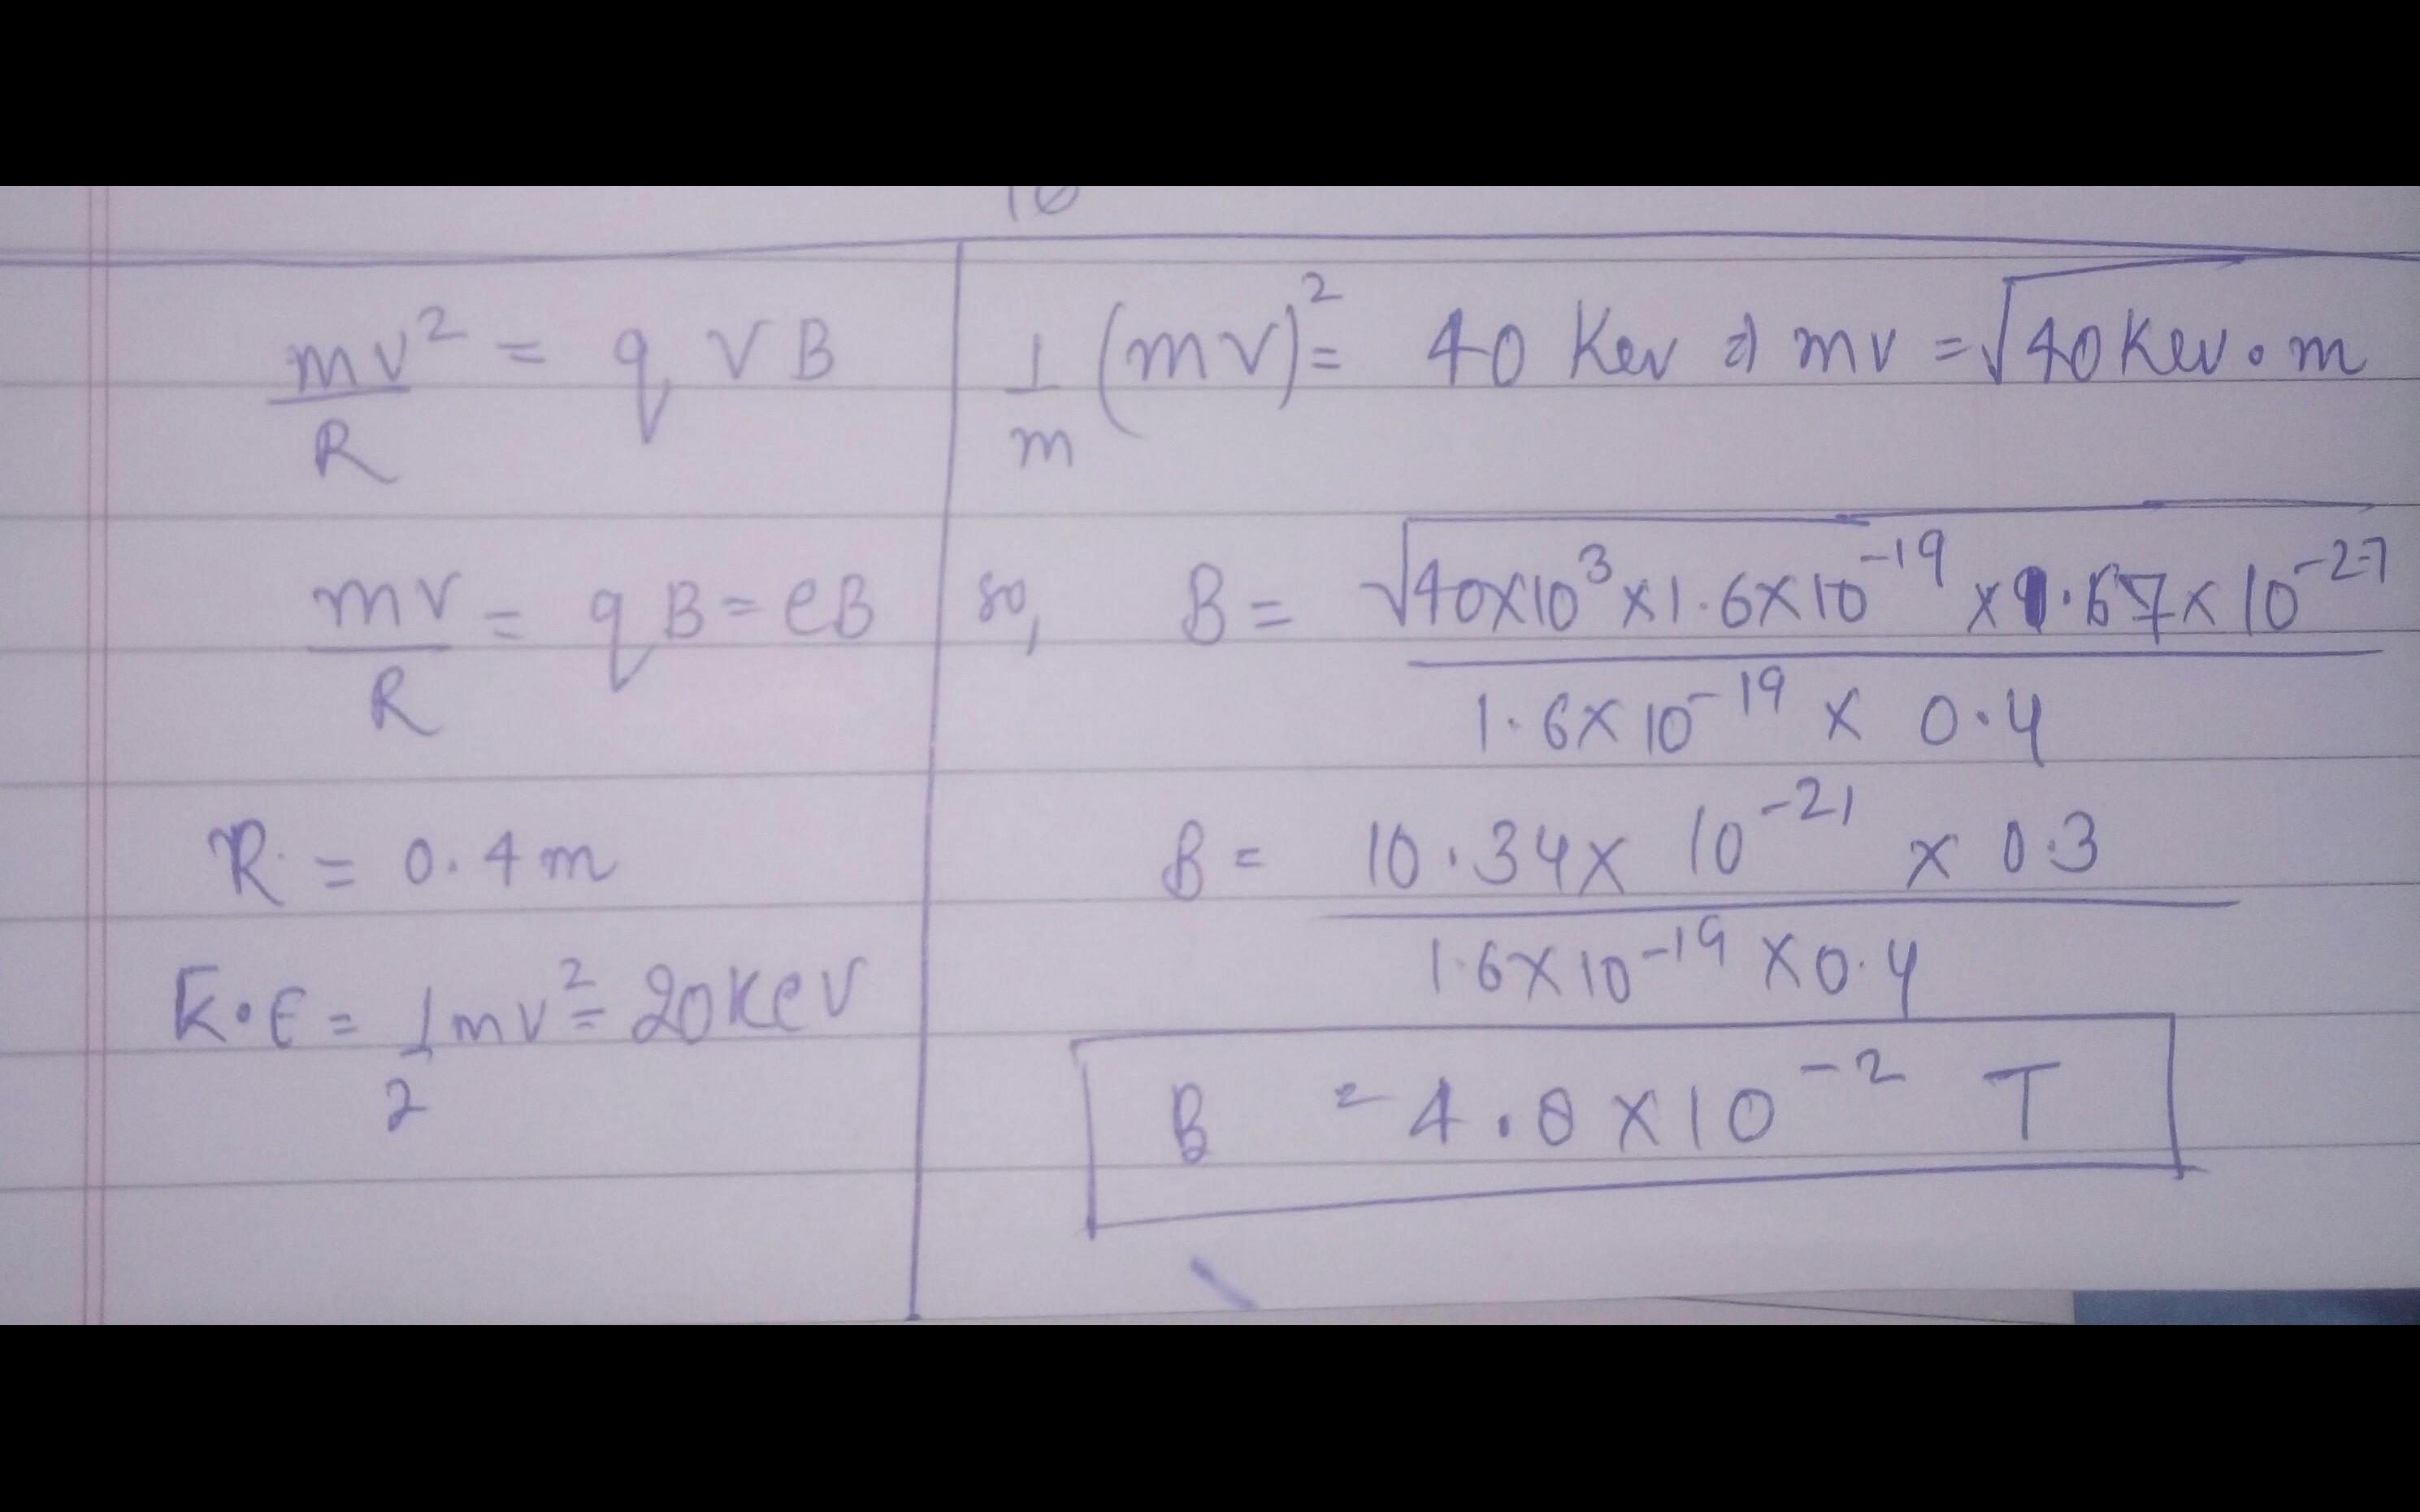 10
mv² / R = q v B
mv / R = q B = eB
R = 0.4 m
K.E = 1/2 mv² = 20 KeV
1/m (mv)² = 40 Kev ⇒ mv = √40 Kev . m
so, B = √40×10³×1.6×10⁻¹⁹×1.67×10⁻²⁷ / 1.6×10⁻¹⁹ × 0.4
B = 10.34× 10⁻²¹ × 0.3 / 1.6×10⁻¹⁹ ×0.4
B = 4.8×10⁻² T